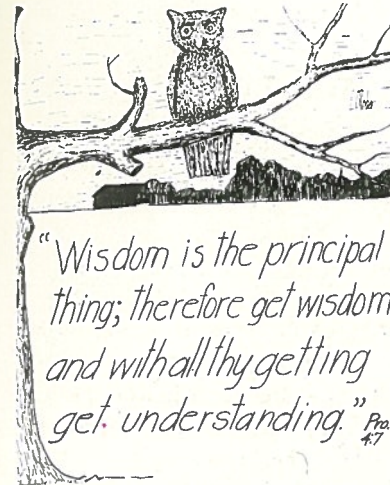 "Wisdom is the principal
thing; therefore get wisdom
and with all thy getting
get understanding."
Pro.
4:7